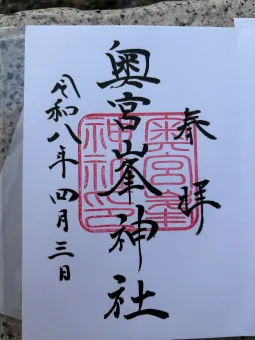 奉拝
奥宮峯神社
奥宮峯神社印
令和八年四月三日